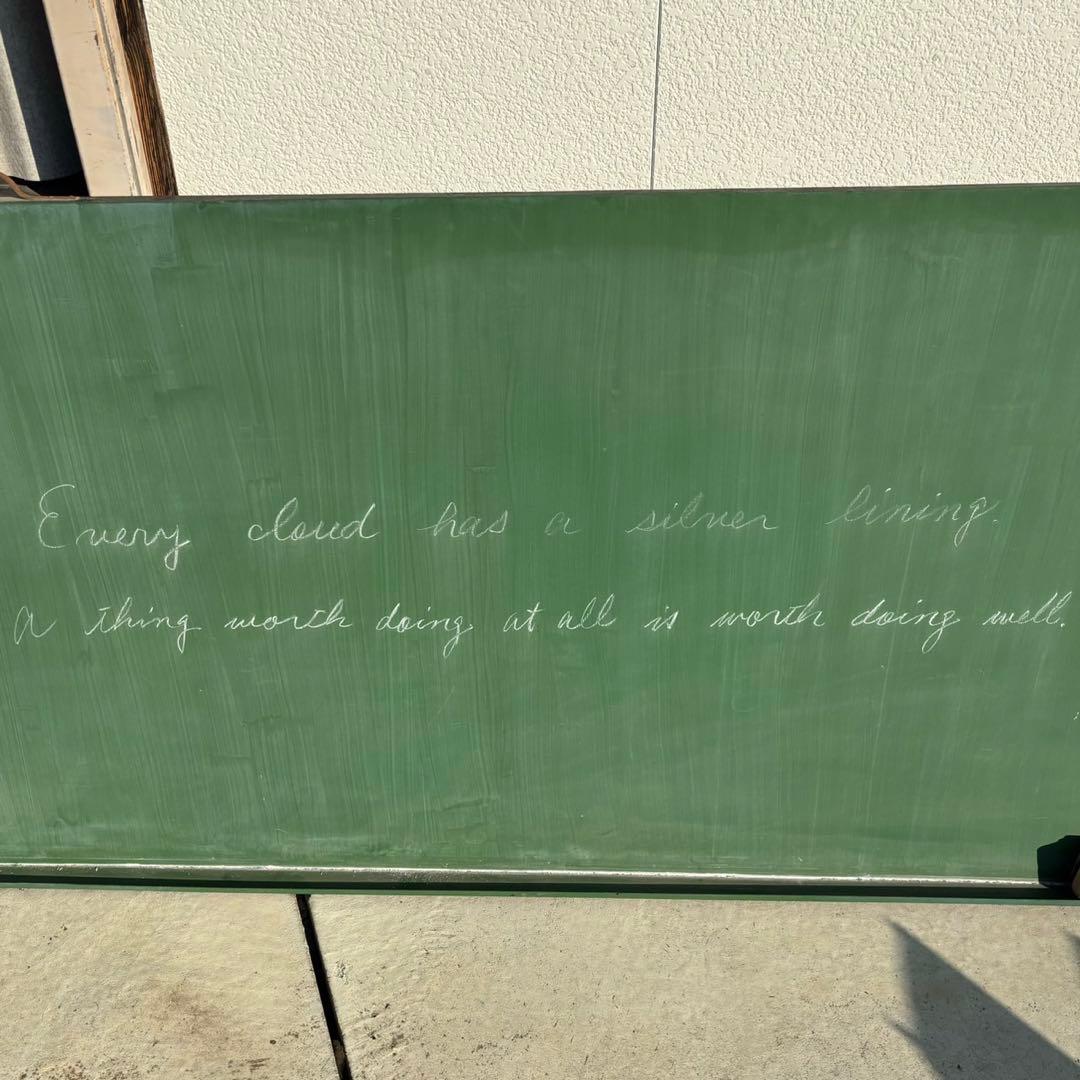 Every cloud has a silver lining.
A thing worth doing at all is worth doing well.